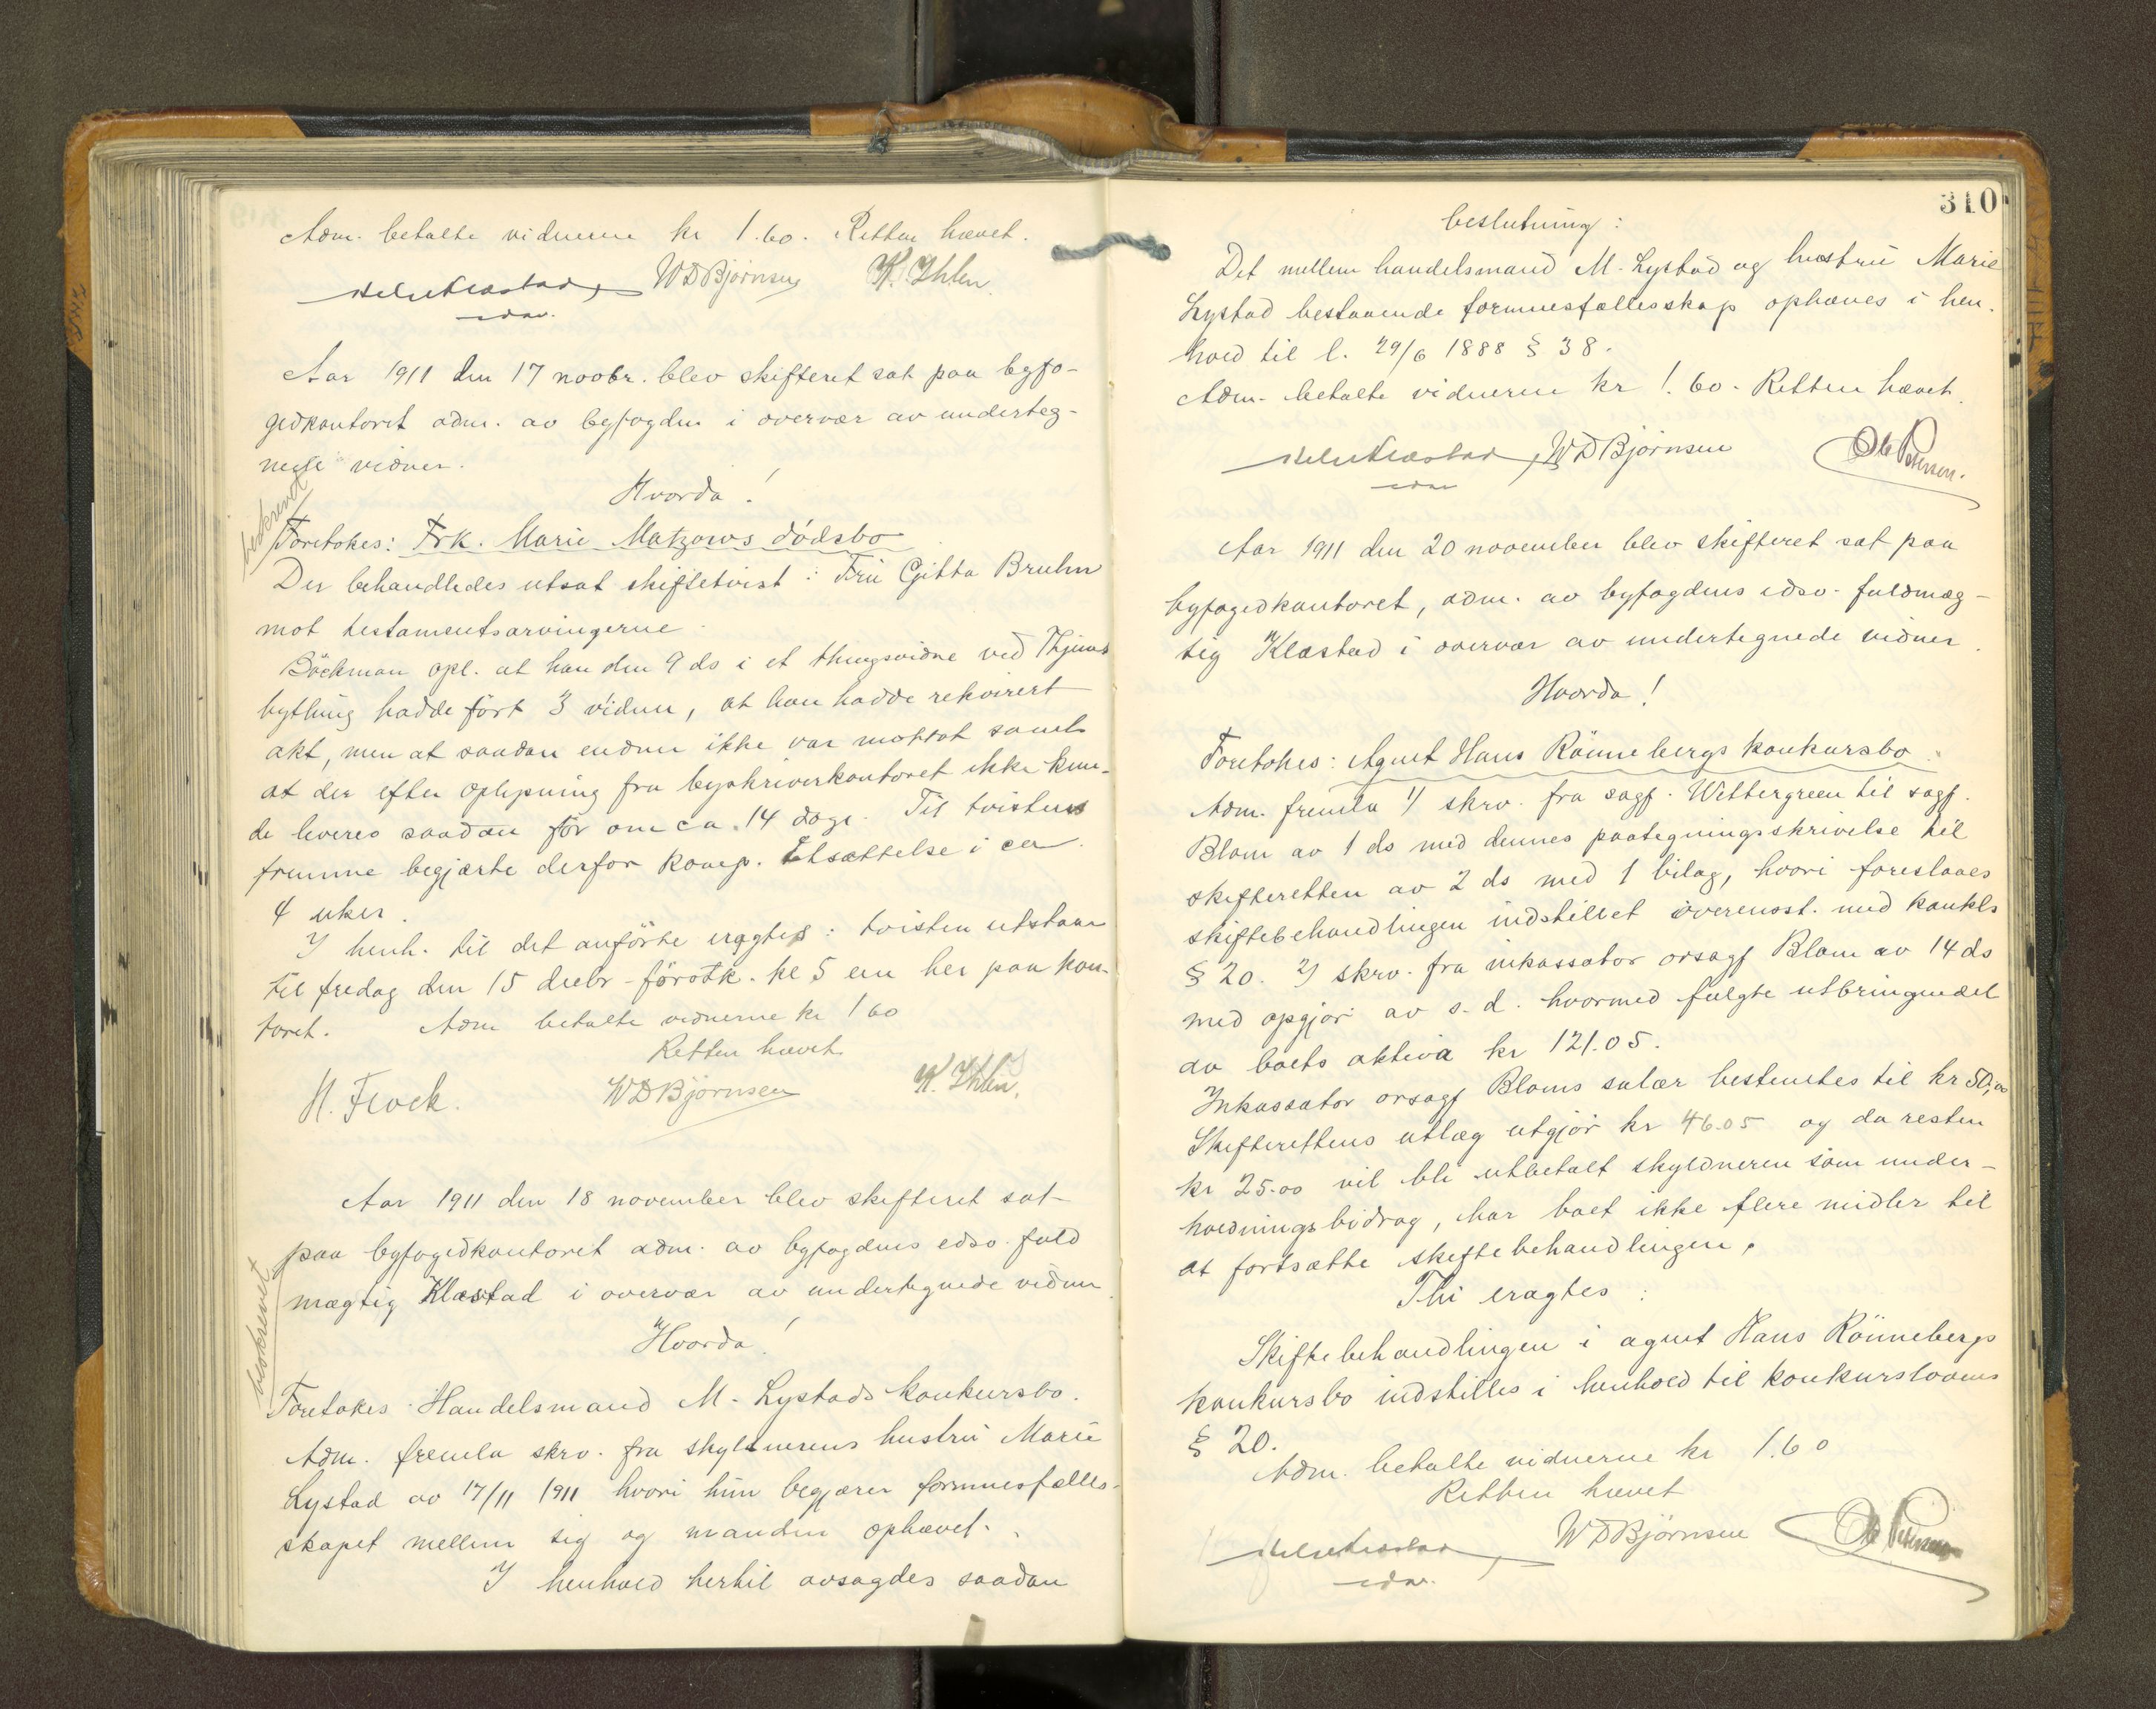 Adm. betalte vidnerne kr 1.60. Retten hævet.
WDBjörnsen K. Ihlen
edsv.
Aar 1911 den 17 novbr. blev skifteret sat paa byfo-
gedkontoret adm. av byfogden i overvær av underteg-
nede vidner.
Hvorda!
beskrevet
Foretokes: Frk. Marie Matzows dödsbo
Der behandledes utsat skiftetvist: Fru Gitta Bruhn
mot testamentsarvingerne.
Böckman opl. at han den 9 ds i et thingsvidne ved Thjems
bything hadde fört 3 vidner, at han hadde rekvirert
akt, men at saadan endnu ikke var mottat samt
at der efter oplysning fra byskriverkontoret ikke kun-
de leveres saadan för om ca. 14 dage. Til tvistens
fremme begjærte derfor komp. utsættelse i ca
4 uker.
I henh. til det anförte eragtes: tvisten utstaar
til fredag den 15 decbr - förstk. kl 5 em her paa kon-
toret. Adm betalte vidnerne kr 1 60
Retten hævet
H. Flock. WDBjörnsen K. Ihlen.
Aar 1911 den 18 november blev skifteret sat
paa byfogedkontoret adm. av byfogdens edsv. fuld
mægtig Klæstad i overvær av undertegnede vidner.
Hvorda!
beskrevet
Foretokes Handelsmand M. Lystads konkursbo.
Adm. fremla skrv. fra skyldnerens hustru Marie
Lystad av 17/11 1911 hvori hun begjærer formuesfælles-
skapet mellem sig og manden ophævet.
I henhold hertil avsagdes saadan
310
beslutning:
Det mellem handelsmand M. Lystad og hustru Marie
Lystad bestaaende formuesfællesskap ophæves i hen-
hold til l. 29/6 1888 § 38.
Adm. betalte vidnerne kr 1.60. Retten hævet.
WDBjörnsen Ole Petersen.
edsv
Aar 1911 den 20 november blev skifteret sat paa
byfogedkontoret, adm. av byfogdens edsv. fuldmæg-
tig Klæstad i overvær av undertegnede vidner.
Hvorda!
Foretokes: Agent Hans Rönnebergs konkursbo.
Adm. fremla 1) skrv. fra sagf. Wettergreen til sagf.
Blom av 1 ds med dennes paategningsskrivelse til
skifteretten av 2 ds med 1 bilag, hvori foreslaaes
skiftebehandlingen indstillet overensst. med konkls
§ 20. 2) skrv. fra inkassator orsagf Blom av 14 ds
med opgjör av s. d. hvormed fulgte utbringendet
av boets aktiva kr 121.05.
Inkassator orsagf Bloms salær bestemtes til kr 50,00
Skifterettens utlæg utgjör kr 46.05 og da resten
kr 25.00 vil bli utbetalt skyldneren som under-
holdningsbidrag, har boet ikke flere midler til
at fortsætte skiftebehandlingen.
Thi eragtes:
Skiftebehandlingen i agent Hans Rönnebergs
konkursbo indstilles i henhold til konkurslovens
§ 20.
Adm. betalte vidnerne kr 1.60
Retten hævet
WDBjörnsen Ole Petersen
edsv.